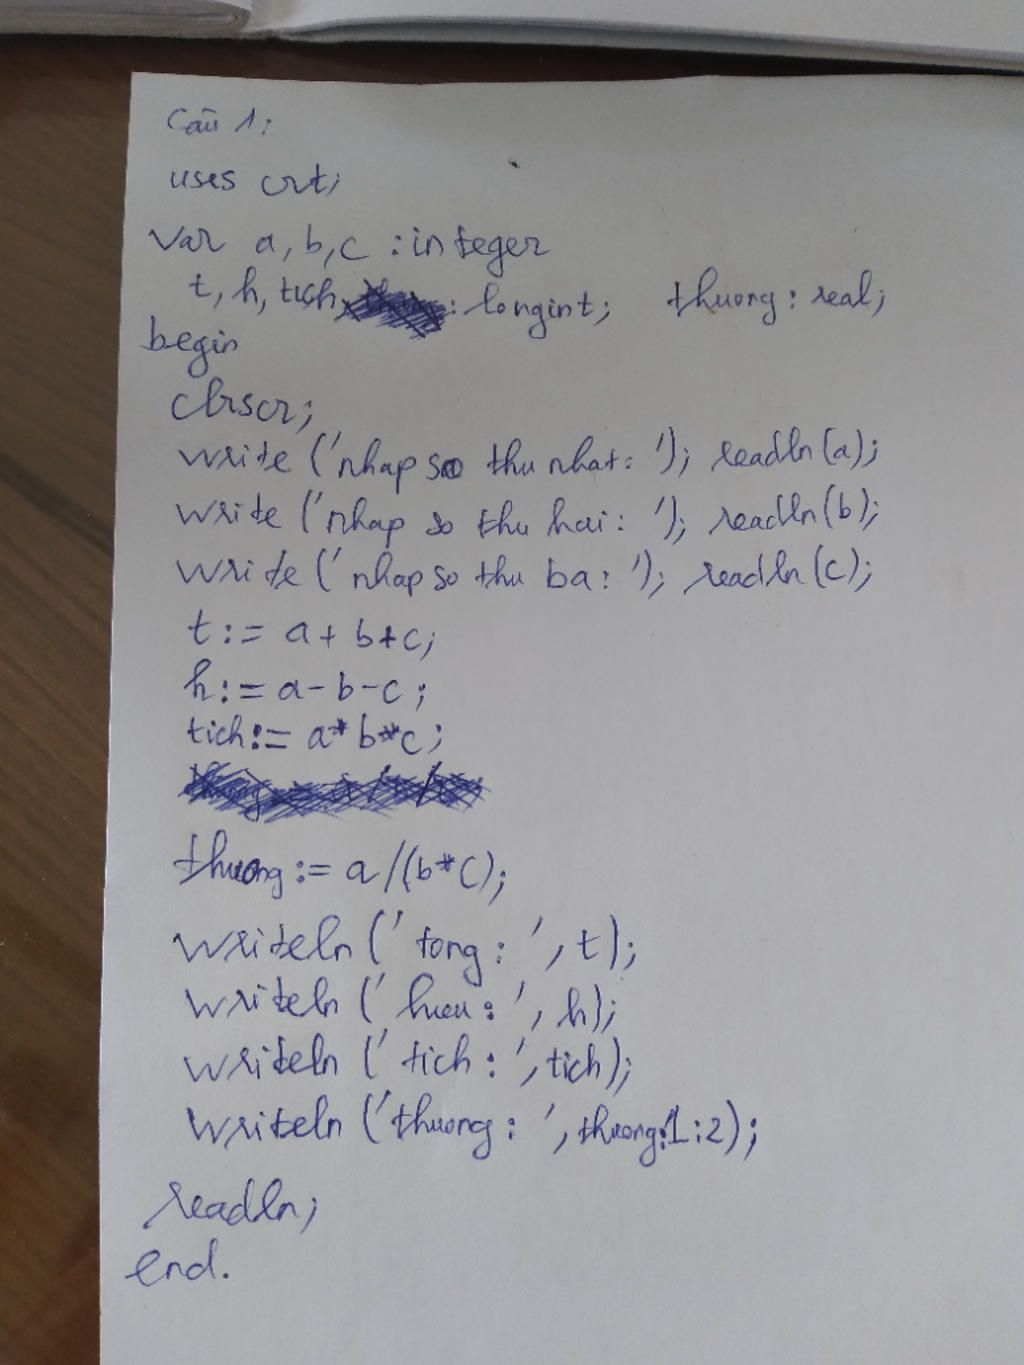 Câu 1:
uses crt;
var a, b, c : integer
t, h, tich, : longint; thuong : real;
begin
clrscr;
write ('nhap so thu nhat: '); readln(a);
write ('nhap so thu hai: '); readln(b);
write ('nhap so thu ba: '); readln(c);
t := a + b + c;
h := a - b - c;
tich := a * b * c;
thuong := a / (b * c);
writeln (' tong : ', t);
writeln (' hieu : ', h);
writeln (' tich : ', tich);
writeln ('thuong : ', thuong:1:2);
readln;
end.